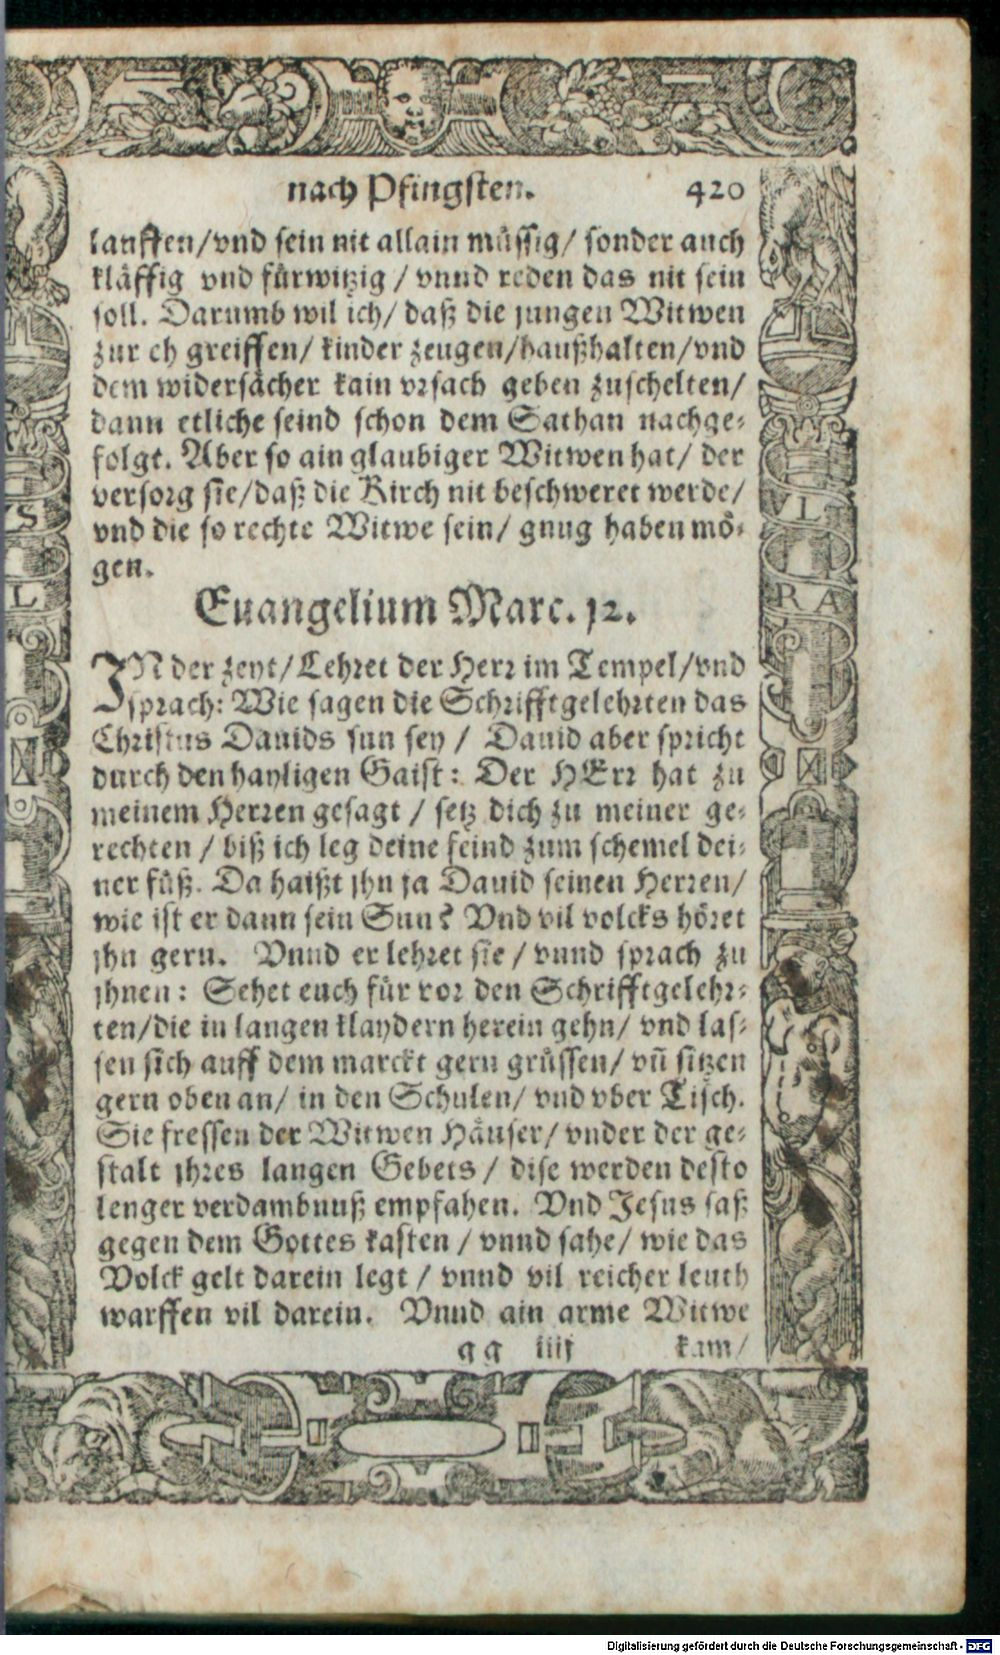 nach Pfingsten. 420
lauffen/vnd sein nit allain müssig/ sonder auch
kläffig vnd fürwitzig / vnnd reden das nit sein
soll. Darumb wil ich/ daß die jungen Witwen
zur eh greiffen/ kinder zeugen/haußhalten/vnd
dem widersächer kain vrsach geben zuschelten/
dann etliche seind schon dem Sathan nachge-
folgt. Aber so ain glaubiger Witwen hat/ der
versorg sie/daß die Kirch nit beschweret werde/
vnd die so rechte Witwe sein/ gnug haben mö-
gen.
Euangelium Marc. 12.
IN der zeyt/Lehret der Herr im Tempel/vnd
sprach: Wie sagen die Schrifftgelehrten das
Christus Dauids sun sey / Dauid aber spricht
durch den hayligen Gaist: Der HErr hat zu
meinem Herren gesagt / setz dich zu meiner ge-
rechten / biß ich leg deine feind zum schemel dei-
ner füß. Da haißt jhn ja Dauid seinen Herren/
wie ist er dann sein Sun? Vnd vil volcks höret
jhn gern. Vnnd er lehret sie / vnnd sprach zu
jhnen: Sehet euch für vor den Schrifftgelehr-
ten/die in langen klaydern herein gehn/ vnd las-
sen sich auff dem marckt gern grüssen/ vñ sitzen
gern oben an/ in den Schulen/ vnd vber Tisch.
Sie fressen der Witwen Häuser/ vnder der ge-
stalt jhres langen Gebets / dise werden desto
lenger verdambnuß empfahen. Vnd Jesus saß
gegen dem Gottes kasten / vnnd sahe/ wie das
Volck gelt darein legt / vnnd vil reicher leuth
warffen vil darein. Vnnd ain arme Witwe
gg iiij kam/
VS
L
VL
RA
Digitalisierung gefördert durch die Deutsche Forschungsgemeinschaft - DFG